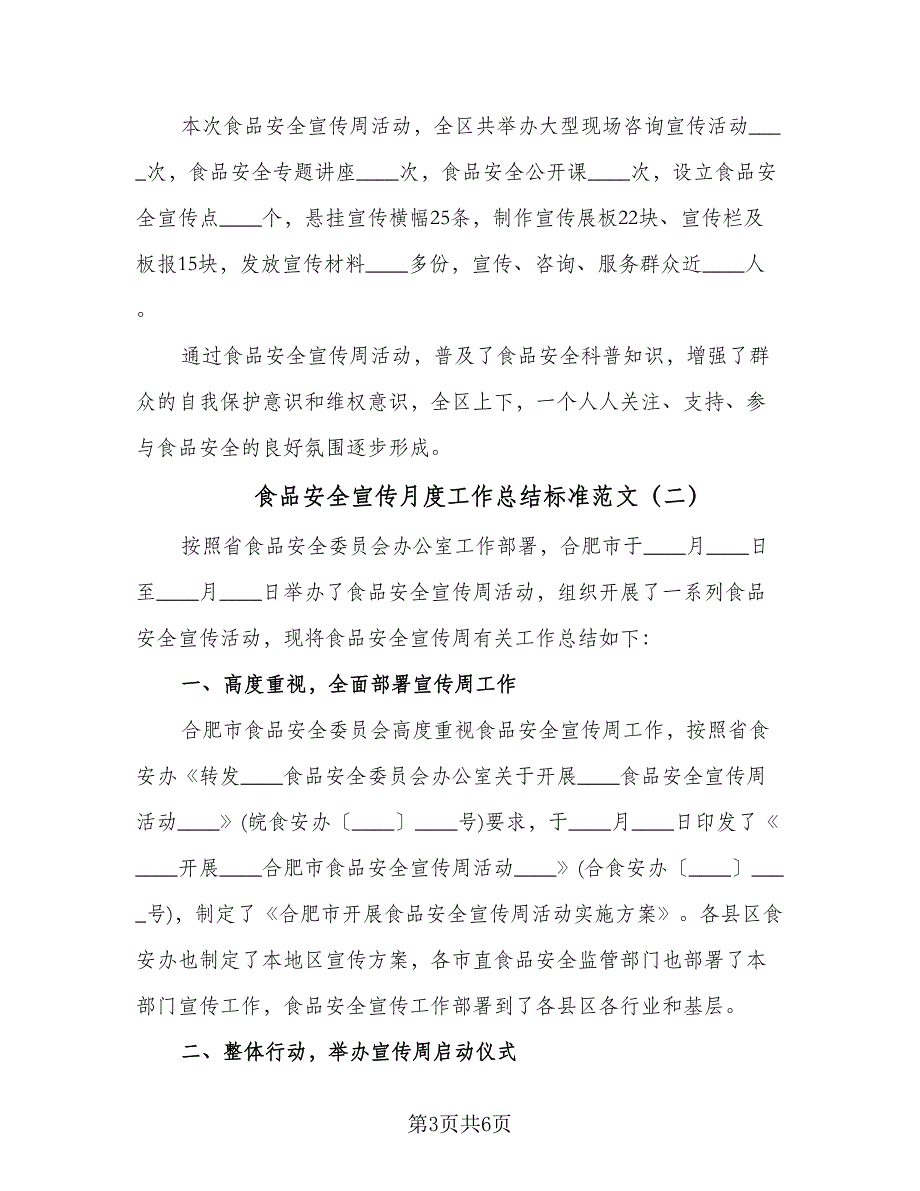 本次食品安全宣传周活动，全区共举办大型现场咨询宣传活动___
_次，食品安全专题讲座____次，食品安全公开课____次，设立食品安
全宣传点____个，悬挂宣传横幅25条，制作宣传展板22块、宣传栏及
板报15块，发放宣传材料____多份，宣传、咨询、服务群众近____人
。
通过食品安全宣传周活动，普及了食品安全科普知识，增强了群
众的自我保护意识和维权意识，全区上下，一个人人关注、支持、参
与食品安全的良好氛围逐步形成。
食品安全宣传月度工作总结标准范文（二）
按照省食品安全委员会办公室工作部署，合肥市于____月____日
至____月____日举办了食品安全宣传周活动，组织开展了一系列食品
安全宣传活动，现将食品安全宣传周有关工作总结如下：
一、高度重视，全面部署宣传周工作
合肥市食品安全委员会高度重视食品安全宣传周工作，按照省食
安办《转发____食品安全委员会办公室关于开展____食品安全宣传周
活动____》(皖食安办〔____〕____号)要求，于____月____日印发了《
____开展____合肥市食品安全宣传周活动____》(合食安办〔____〕___
_号)，制定了《合肥市开展食品安全宣传周活动实施方案》。各县区食
安办也制定了本地区宣传方案，各市直食品安全监管部门也部署了本
部门宣传工作，食品安全宣传工作部署到了各县区各行业和基层。
二、整体行动，举办宣传周启动仪式
第3页共6页